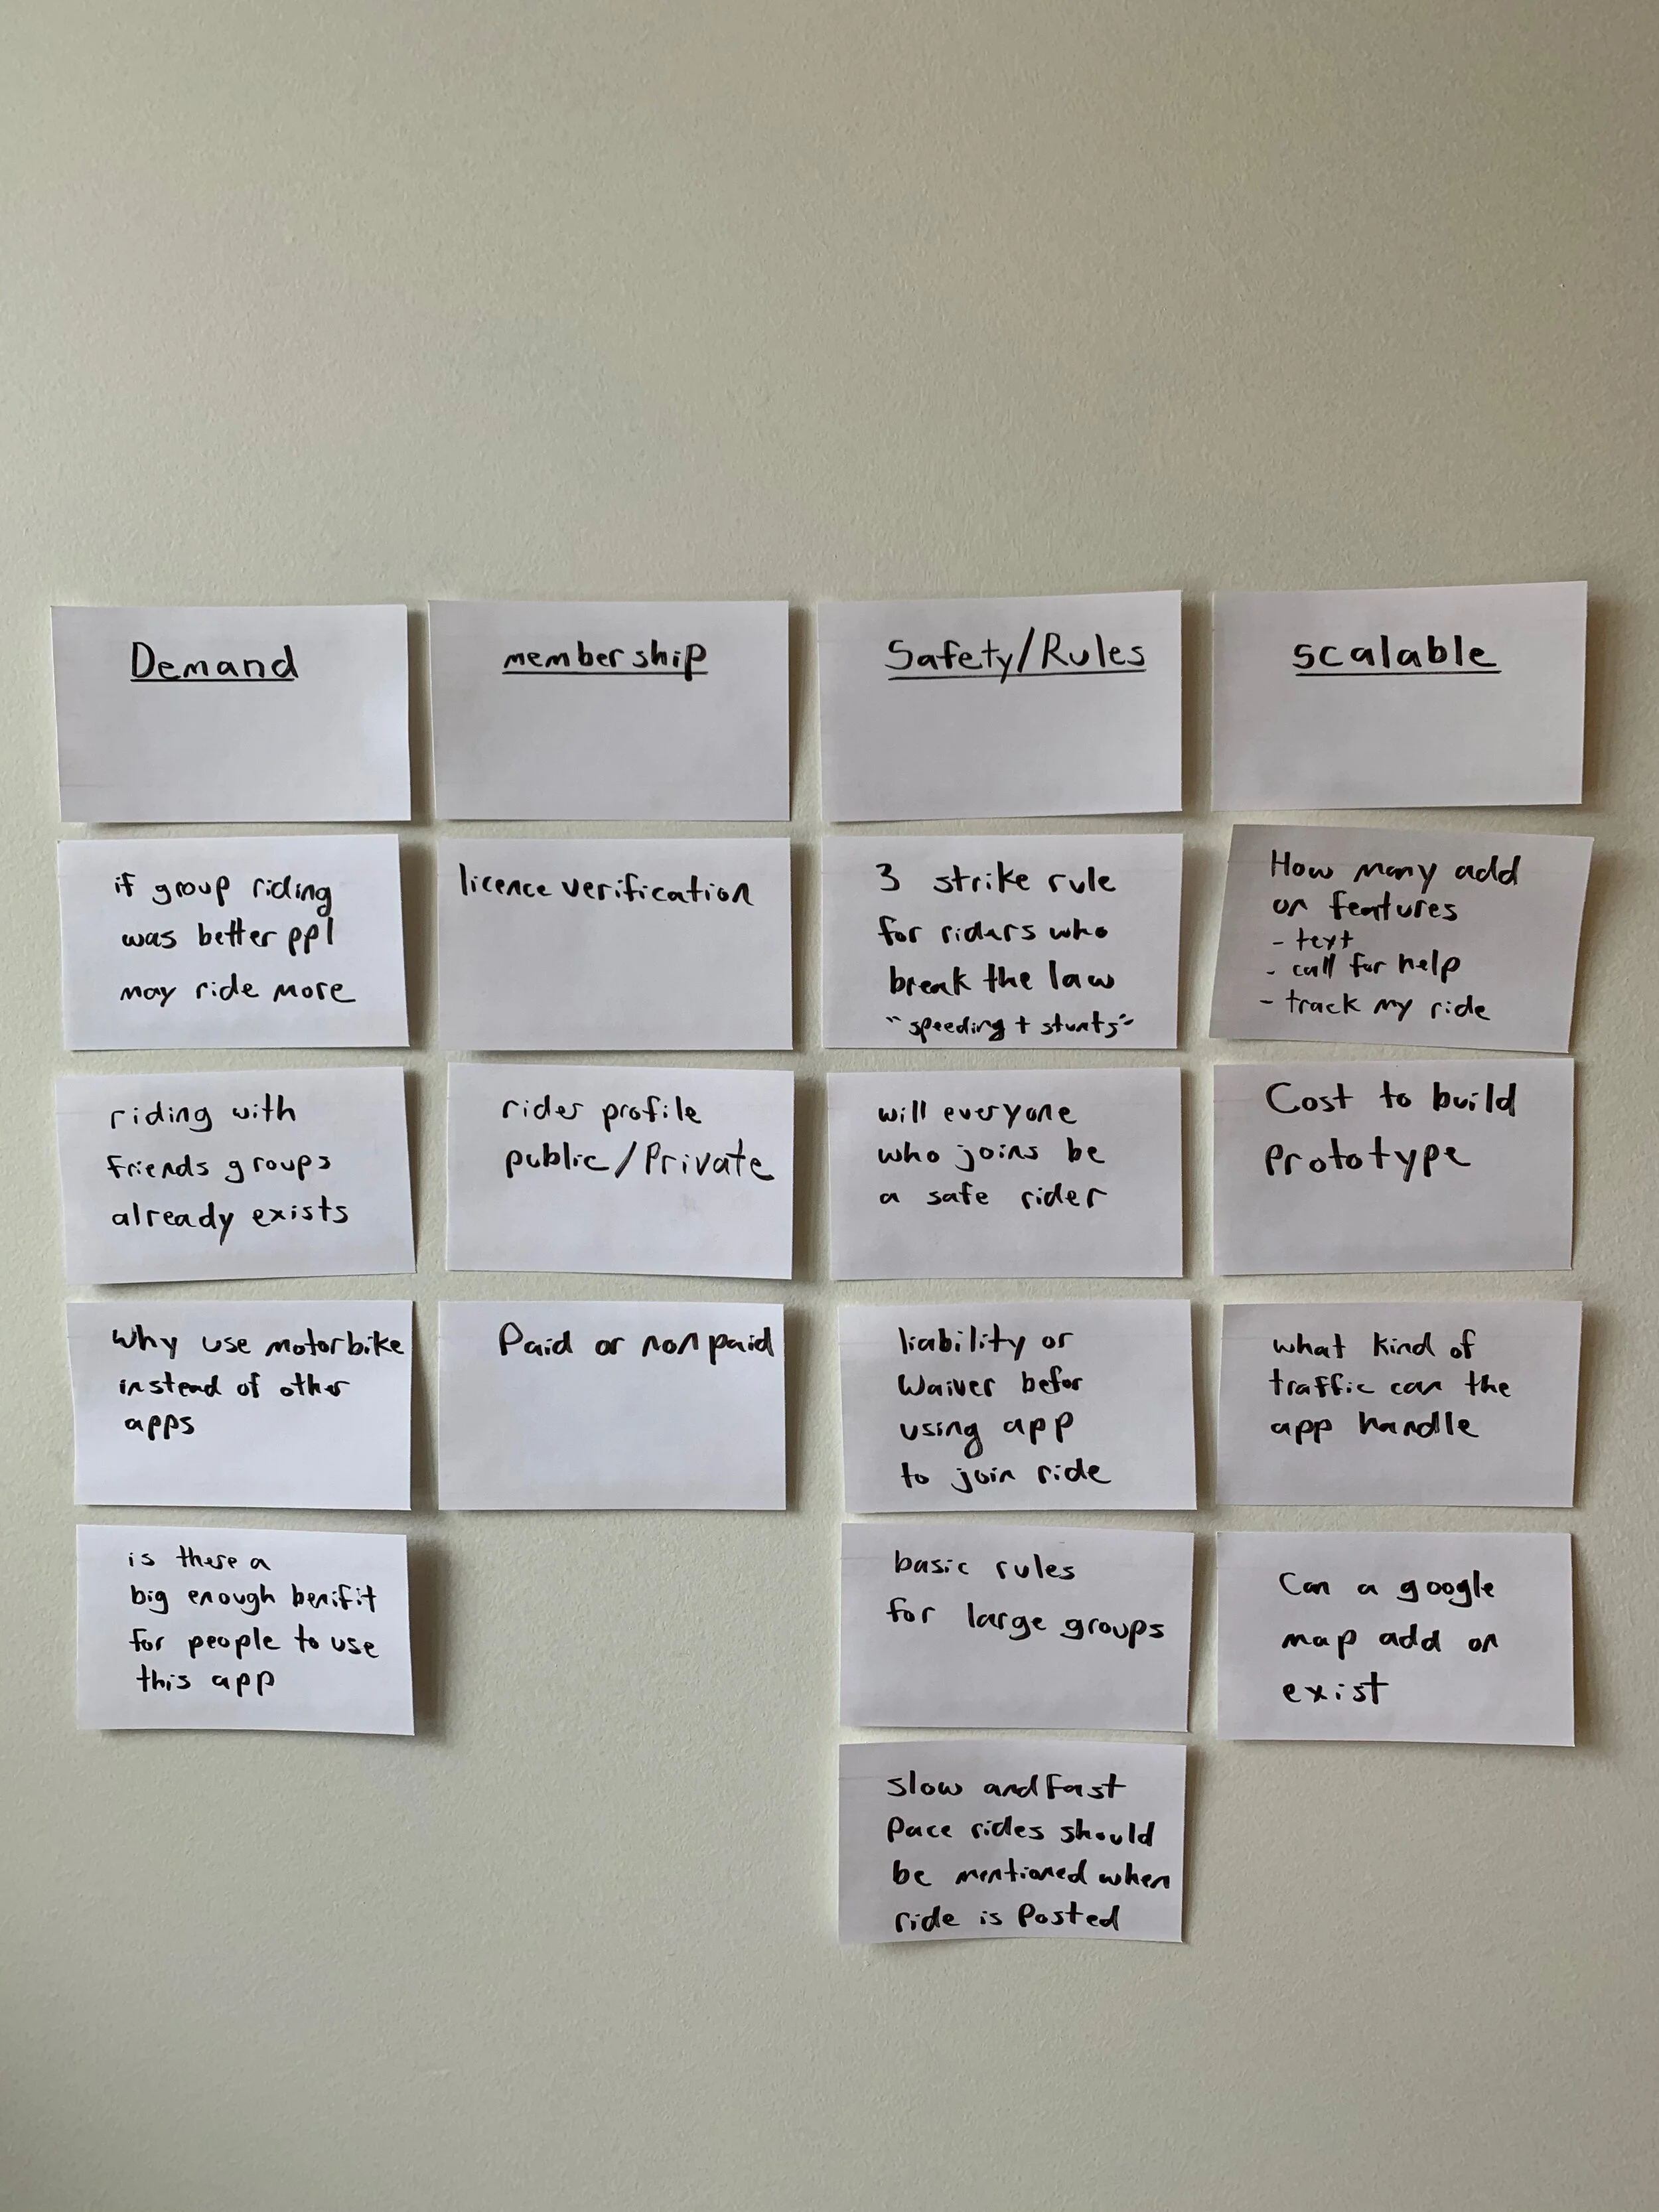 Demand
if group riding
was better ppl
may ride more
riding with
friends groups
already exists
Why use motorbike
instead of other
apps
is there a
big enough benifit
for people to use
this app
membership
licence verification
rider profile
public/Private
Paid or non paid
Safety/Rules
3 strike rule
for riders who
break the law
"speeding + stunts"
will everyone
who joins be
a safe rider
liability or
Waiver befor
using app
to join ride
basic rules
for large groups
slow and fast
Pace rides should
be mentioned when
ride is Posted
scalable
How many add
on features
- text
- call for help
- track my ride
Cost to build
Prototype
what kind of
traffic can the
app handle
Can a google
map add on
exist